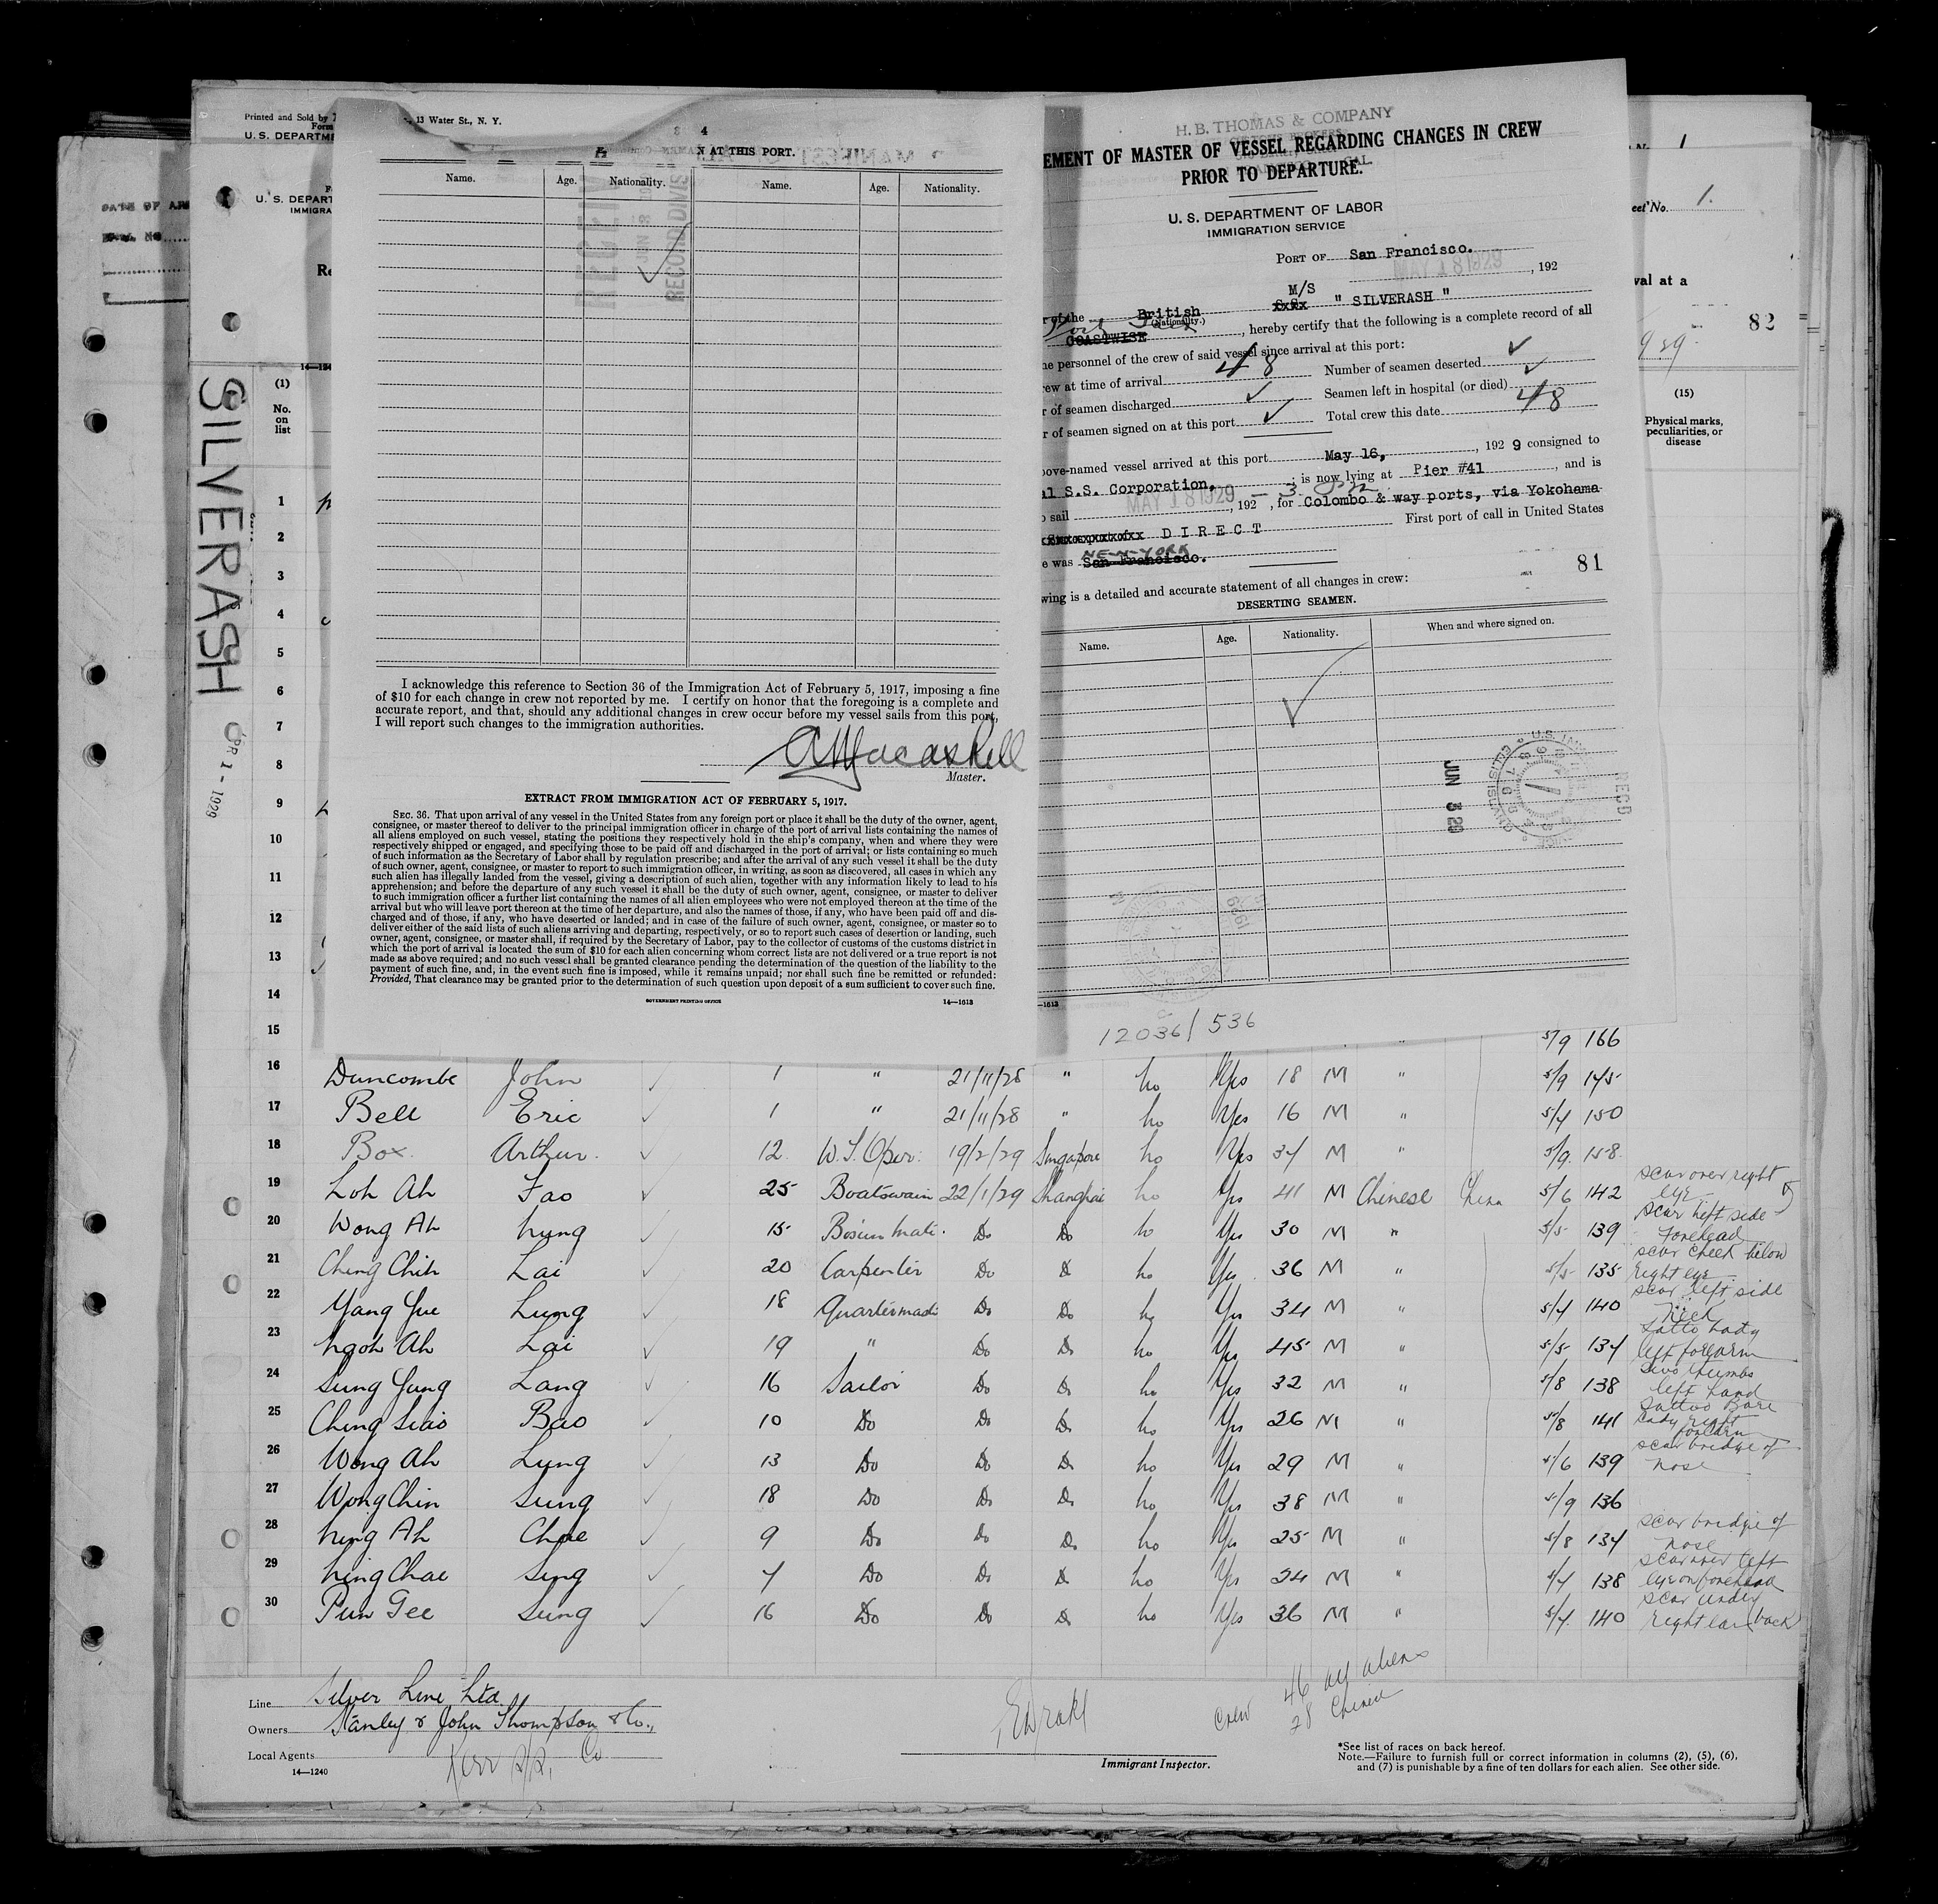 Printed and Sold by
13 Water St., N. Y.
U. S. DEPARTME
U. S. DEPART
IMMIGRA
DATE OF
SILVERASH
PR 1 - 1929
(1)
No.
on
list
N AT THIS PORT.
Name. Age. Nationality. Name. Age. Nationality.
RECORD DIVIS
I acknowledge this reference to Section 36 of the Immigration Act of February 5, 1917, imposing a fine
of $10 for each change in crew not reported by me. I certify on honor that the foregoing is a complete and
accurate report, and that, should any additional changes in crew occur before my vessel sails from this port,
I will report such changes to the immigration authorities.
Master.
EXTRACT FROM IMMIGRATION ACT OF FEBRUARY 5, 1917.
SEC. 36. That upon arrival of any vessel in the United States from any foreign port or place it shall be the duty of the owner, agent,
consignee, or master thereof to deliver to the principal immigration officer in charge of the port of arrival lists containing the names of
all aliens employed on such vessel, stating the positions they respectively hold in the ship's company, when and where they were
respectively shipped or engaged, and specifying those to be paid off and discharged in the port of arrival; or lists containing so much
of such information as the Secretary of Labor shall by regulation prescribe; and after the arrival of any such vessel it shall be the duty
of such owner, agent, consignee, or master to report to such immigration officer, in writing, as soon as discovered, all cases in which any
such alien has illegally landed from the vessel, giving a description of such alien, together with any information likely to lead to his
apprehension; and before the departure of any such vessel it shall be the duty of such owner, agent, consignee, or master to deliver
to such immigration officer a further list containing the names of all alien employees who were not employed thereon at the time of the
arrival but who will leave port thereon at the time of her departure, and also the names of those, if any, who have been paid off and dis-
charged and of those, if any, who have deserted or landed; and in case of the failure of such owner, agent, consignee, or master so to
deliver either of the said lists of such aliens arriving and departing, respectively, or so to report such cases of desertion or landing, such
owner, agent, consignee, or master shall, if required by the Secretary of Labor, pay to the collector of customs of the customs district in
which the port of arrival is located the sum of $10 for each alien concerning whom correct lists are not delivered or a true report is not
made as above required; and no such vessel shall be granted clearance pending the determination of the question of the liability to the
payment of such fine, and, in the event such fine is imposed, while it remains unpaid; nor shall such fine be remitted or refunded:
Provided, That clearance may be granted prior to the determination of such question upon deposit of a sum sufficient to cover such fine.
GOVERNMENT PRINTING OFFICE 14—1613
H. B. THOMAS & COMPANY
EMENT OF MASTER OF VESSEL REGARDING CHANGES IN CREW
PRIOR TO DEPARTURE.
U. S. DEPARTMENT OF LABOR
IMMIGRATION SERVICE
PORT OF San Francisco.
MAY 18 1929 , 192
M/S
r of the British " SILVERASH "
(Nationality.)
COASTWISE , hereby certify that the following is a complete record of all
he personnel of the crew of said vessel since arrival at this port:
rew at time of arrival 48 Number of seamen deserted ✓
r of seamen discharged ✓ Seamen left in hospital (or died) ✓
r of seamen signed on at this port ✓ Total crew this date 48
bove-named vessel arrived at this port May 16, , 192 9 consigned to
al S.S. Corporation, ; is now lying at Pier #41 , and is
o sail MAY 18 1929 , 192 , for Colombo & way ports, via Yokohama
DIRECT First port of call in United States
NEW-YORK
e was San Francisco.
81
wing is a detailed and accurate statement of all changes in crew:
DESERTING SEAMEN.
Name. Age. Nationality. When and where signed on.
JUN 3 29
RECD
—1613
12036/536
1
eet No. 1.
val at a
82
(15)
Physical marks,
peculiarities, or
disease
1
2
3
4
5
6
7
8
9
10
11
12
13
14
15 5/9 166
16 Duncombe John ✓ 1 " 21/11/28 " no Yes 18 M " 5/9 145
17 Bell Eric ✓ 1 " 21/11/28 " no Yes 16 M " 5/4 150
18 Box Arthur ✓ 12 W.T. Oper. 19/2/29 Singapore no Yes 34 M " 5/9 158
19 Loh Ah Fao ✓ 25 Boatswain 22/1/29 Shanghai no Yes 41 M Chinese China 5/6 142 scar over right eye
20 Wong Ah hung ✓ 15 Bosun mate Do Do no Yes 30 M " 5/5 139 scar left side Forehead
21 Ching Chih Lai ✓ 20 Carpenter Do Do no Yes 36 M " 5/5 135 scar cheek below right eye
22 Yang Yue Lung ✓ 18 Do Do no Yes 34 M " 5/4 140 scar left side neck
23 Ngoh Ah Lai ✓ 19 " Do Do no Yes 45 M " 5/5 134 Tatto Lady left forearm
24 Sung Yung Lang ✓ 16 Sailor Do Do no Yes 32 M " 5/8 138 two thumbs left hand
25 Ching Siao Bao ✓ 10 Do Do Do no Yes 26 M " 5/8 141 Tattoo Bare Lady right forearm
26 Wong Ah Lung ✓ 13 Do Do Do no Yes 29 M " 5/6 139 scar bridge of nose
27 Wong Chin Sung ✓ 18 Do Do Do no Yes 38 M " 5/9 136
28 Ning Ah Chae ✓ 9 Do Do Do no Yes 25 M " 5/8 134 scar bridge of nose
29 Ning Chae Sing ✓ 4 Do Do Do no Yes 24 M " 5/4 138 scar over left eye on forehead
30 Pun Gee Sung ✓ 16 Do Do Do no Yes 36 M " 5/4 140 scar under right ear back
Line Silver Line Ltd.
Owners Stanley & John Thompson & Co.,
Local Agents Kerr S/S. Co
14—1240
Immigrant Inspector.
Crew 46 all aliens
28 Chinese
*See list of races on back hereof.
Note.—Failure to furnish full or correct information in columns (2), (5), (6),
and (7) is punishable by a fine of ten dollars for each alien. See other side.